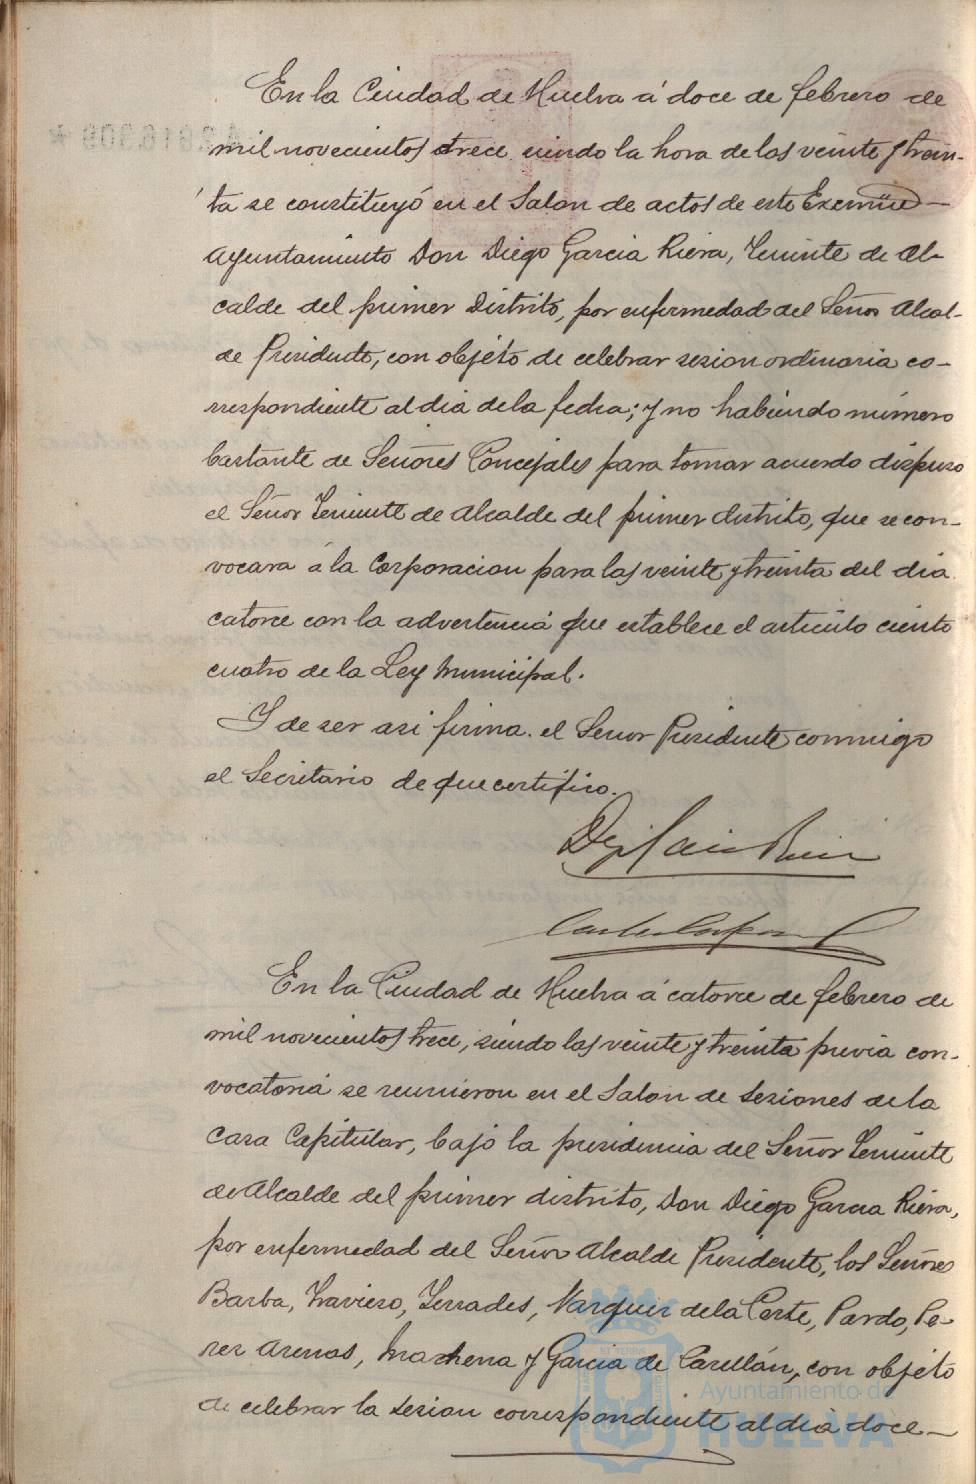 En la Ciudad de Huelva á doce de febrero de
mil novecientos trece siendo la hora de las veinte y trein-
ta se constituyó en el Salon de actos de este
Ayuntamiento Don Diego Garcia Riera, Teniente de Al-
calde del primer Distrito, por enfermedad del Señor Alcal-
de Presidente, con objeto de celebrar sesion ordinaria co-
rrespondiente al dia de la fecha; y no habiendo número
bastante de Señores Concejales para tomar acuerdo dispuso
el Señor Teniente de Alcalde del primer distrito, que se con-
vocara á la Corporacion para las veinte y treinta del dia
catorce con la advertencia que establece el articulo ciento
cuatro de la Ley Municipal.
Y de ser asi firma el Señor Presidente conmigo
el Secretario de que certifico.
En la Ciudad de Huelva á catorce de febrero de
mil novecientos trece, siendo las veinte y treinta previa con-
vocatoria se reunieron en el Salon de Sesiones de la
Casa Capitular, bajo la presidencia del Señor Teniente
de Alcalde del primer distrito, Don Diego Garcia Riera,
por enfermedad del Señor Alcalde Presidente, los Señores
Barba, Travieso, Terrades, Vazquez de la Corte, Pardo, Pe-
rez Arenas, Marchena y Garcia de Castellán, con objeto
de celebrar la sesion correspondiente al dia doce
Ayuntamiento de
HUELVA